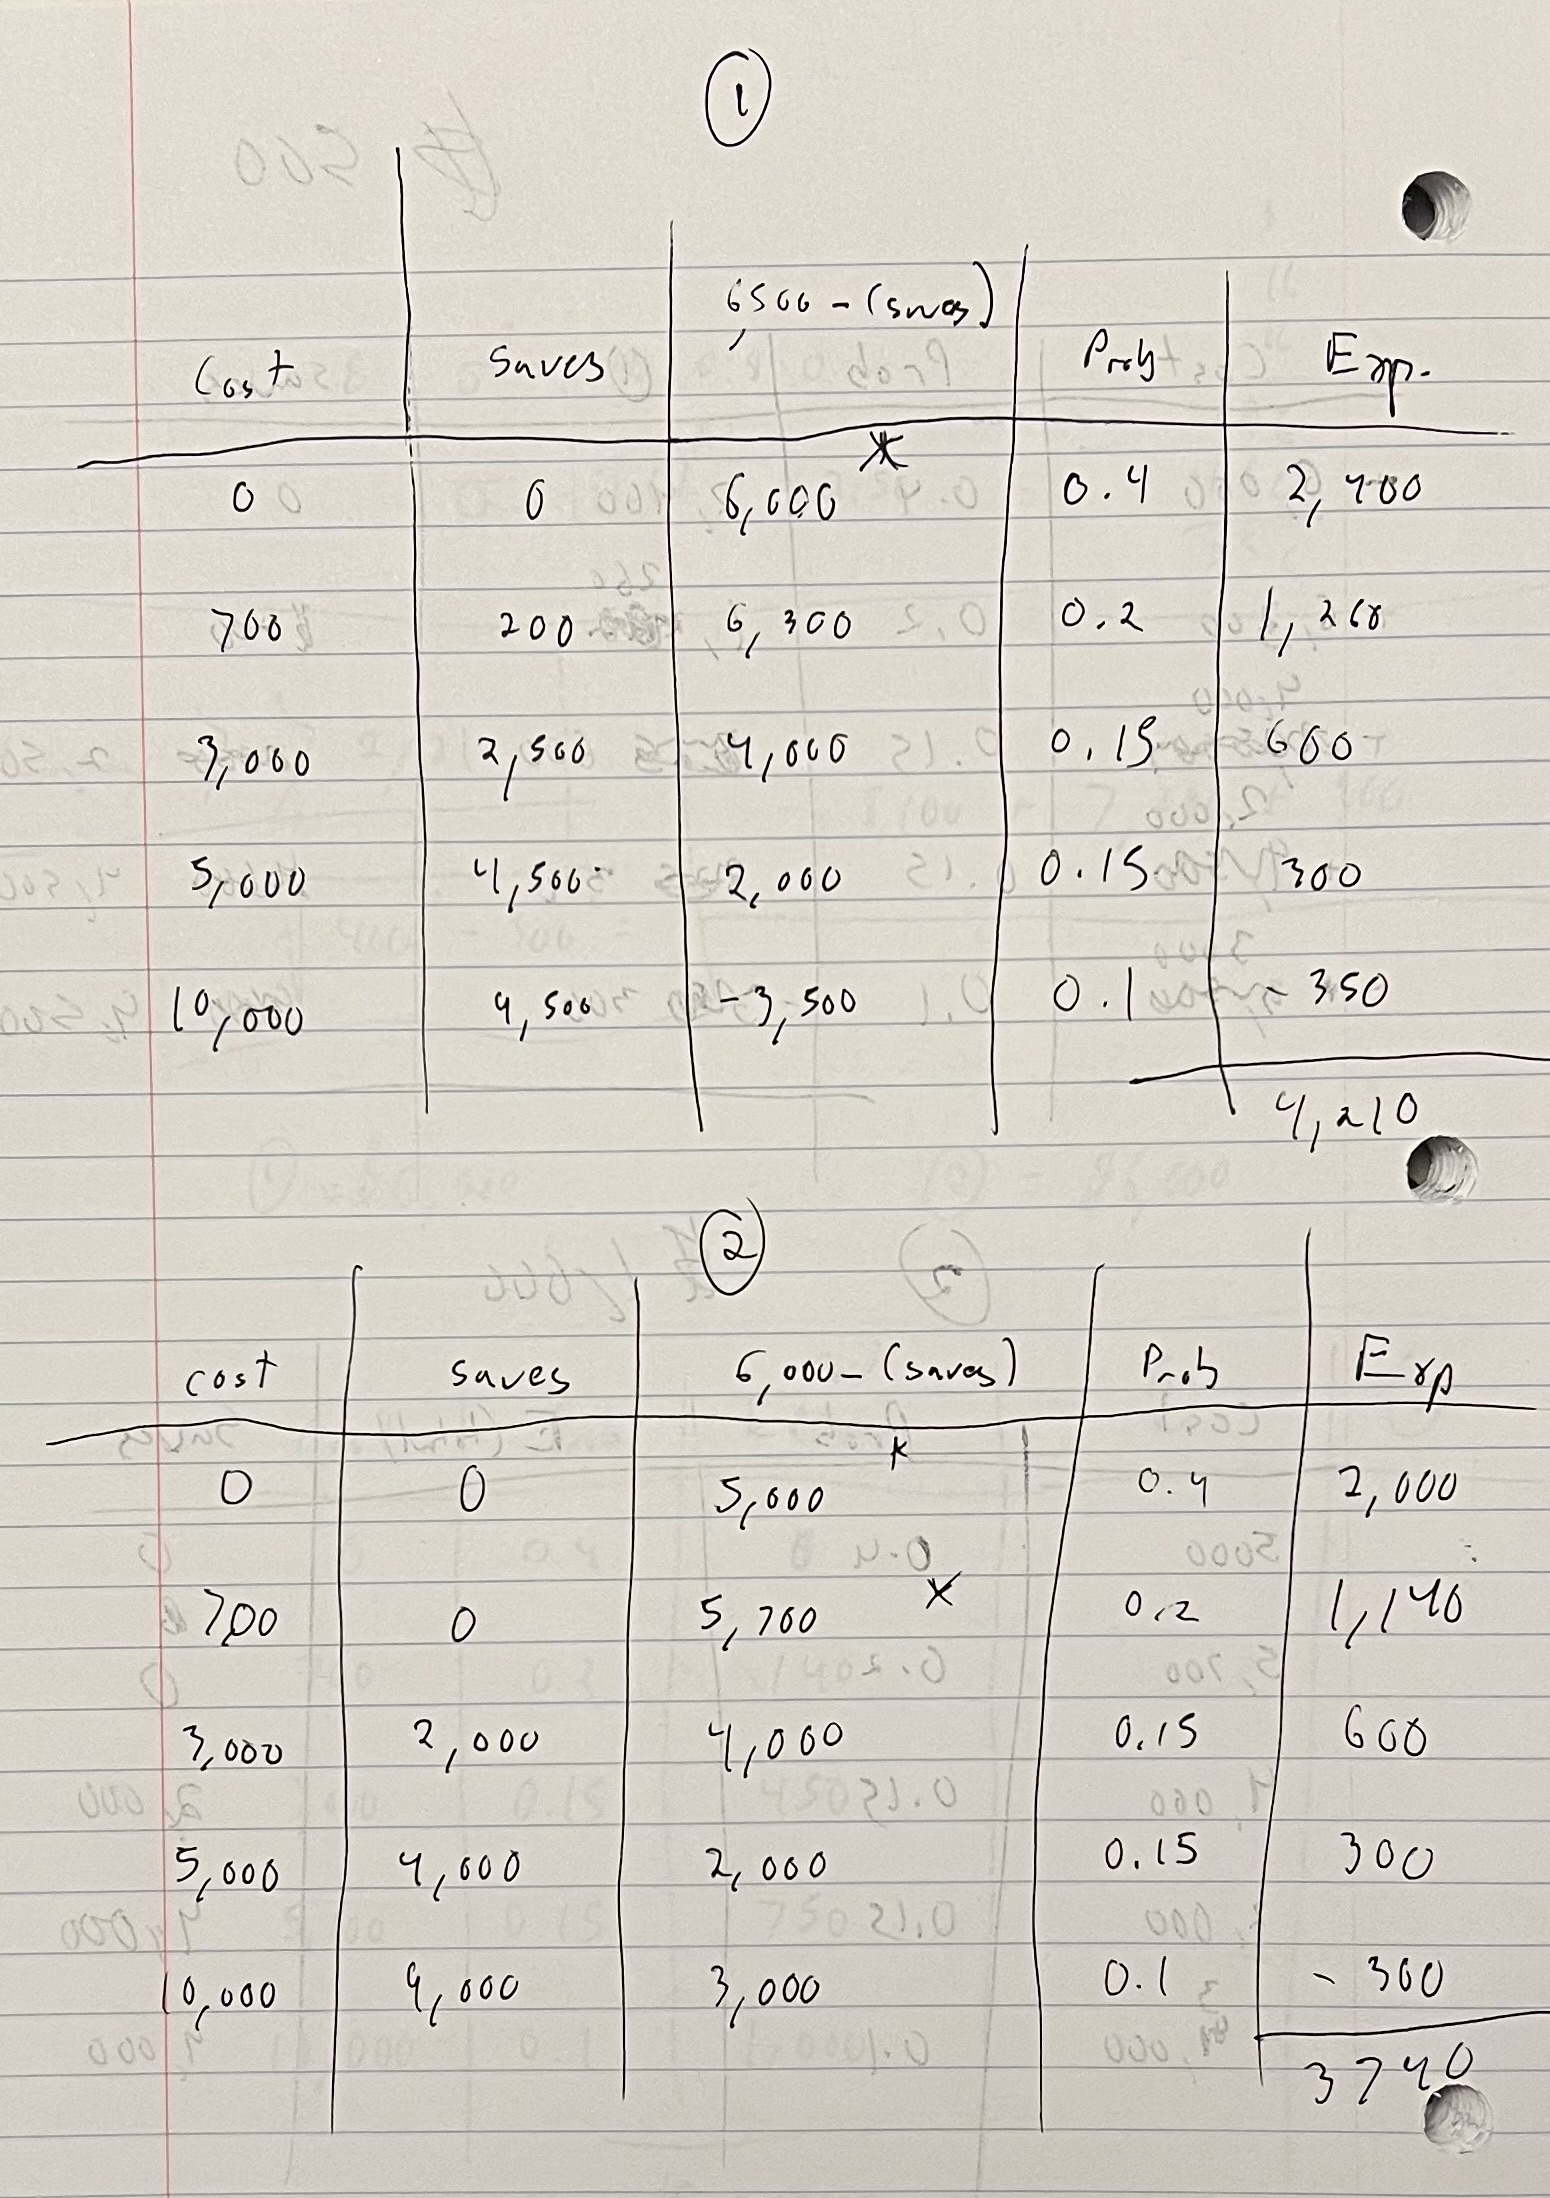 1
Cost saves 6,500 - (saves) Prob Exp.
0 0 6,000 * 0.4 2,400
700 200 6,300 0.2 1,260
3,000 2,500 4,000 0.15 600
5,000 4,500 2,000 0.15 300
10,000 9,500 -3,500 0.1 - 350
4,210
2
cost saves 6,000 - (saves) Prob Exp
0 0 5,000 * 0.4 2,000
700 0 5,700 * 0.2 1,140
3,000 2,000 4,000 0.15 600
5,000 4,000 2,000 0.15 300
10,000 9,000 3,000 0.1 - 300
3740